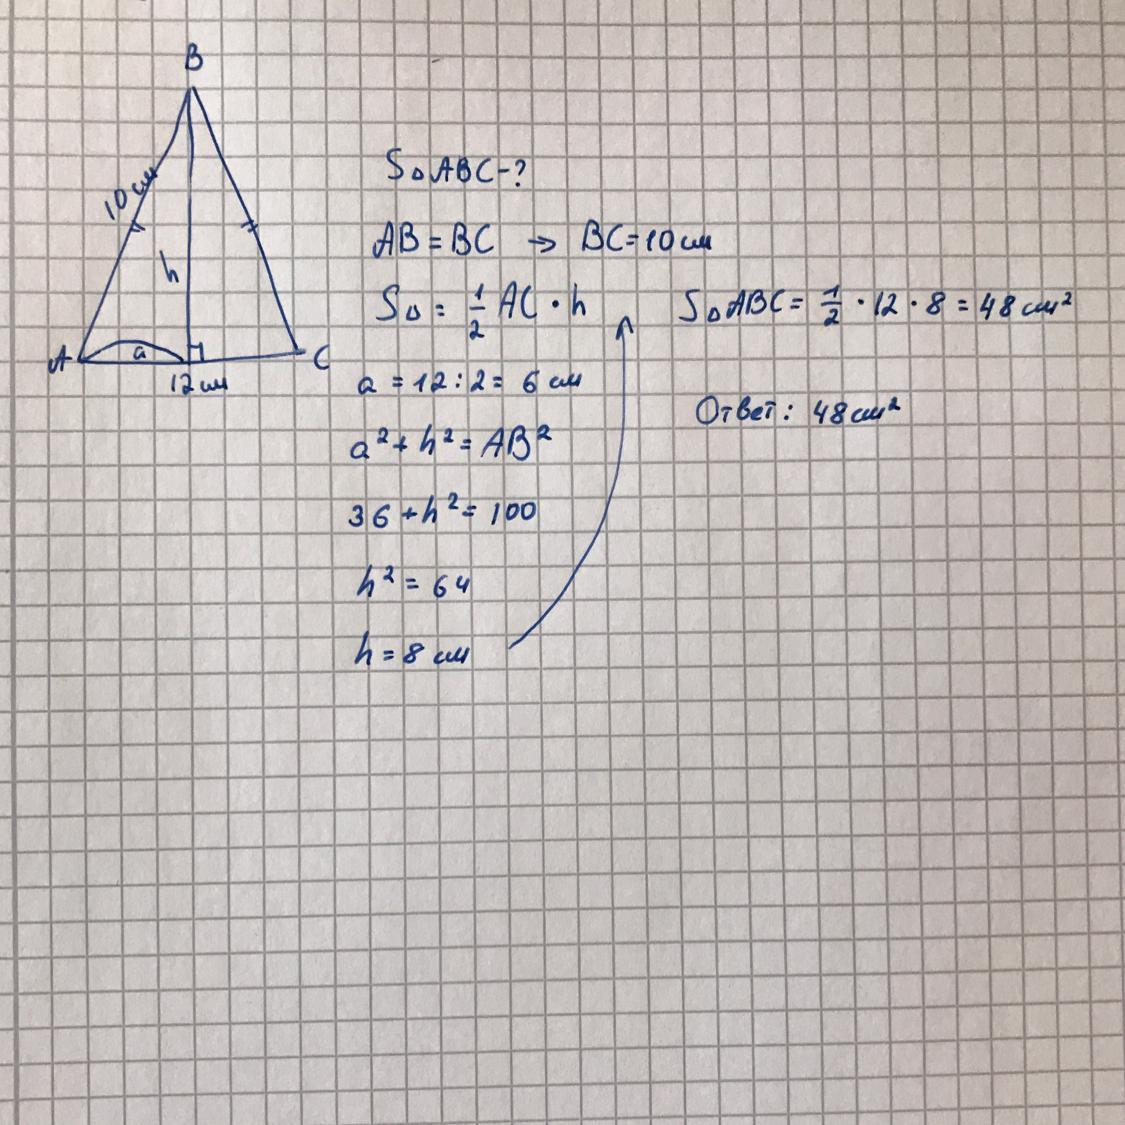 B
10 см
h
A
a
C
12 см
S△ABC-?
AB = BC → BC = 10 см
S△ = 1/2 AC · h
a = 12 : 2 = 6 см
a² + h² = AB²
36 + h² = 100
h² = 64
h = 8 см
S△ABC = 1/2 · 12 · 8 = 48 см²
Ответ: 48 см²